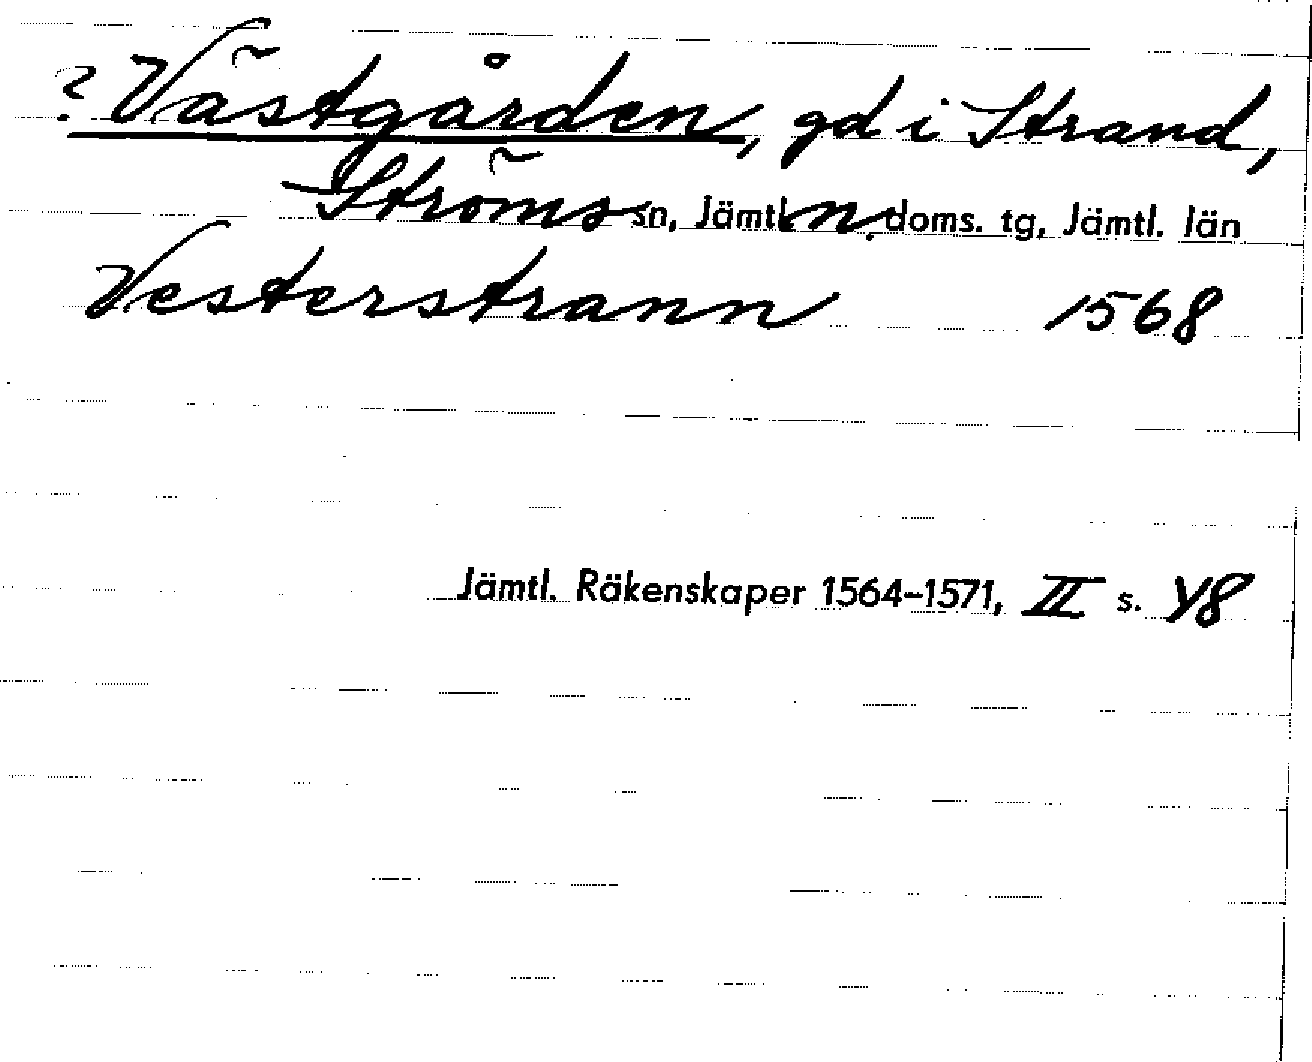 ? Västgården, gd i Strand,
Ströms sn, Jämtl. n. doms. tg, Jämtl. län
Vesterstrann 1568
Jämtl. Räkenskaper 1564–1571, II s. 48